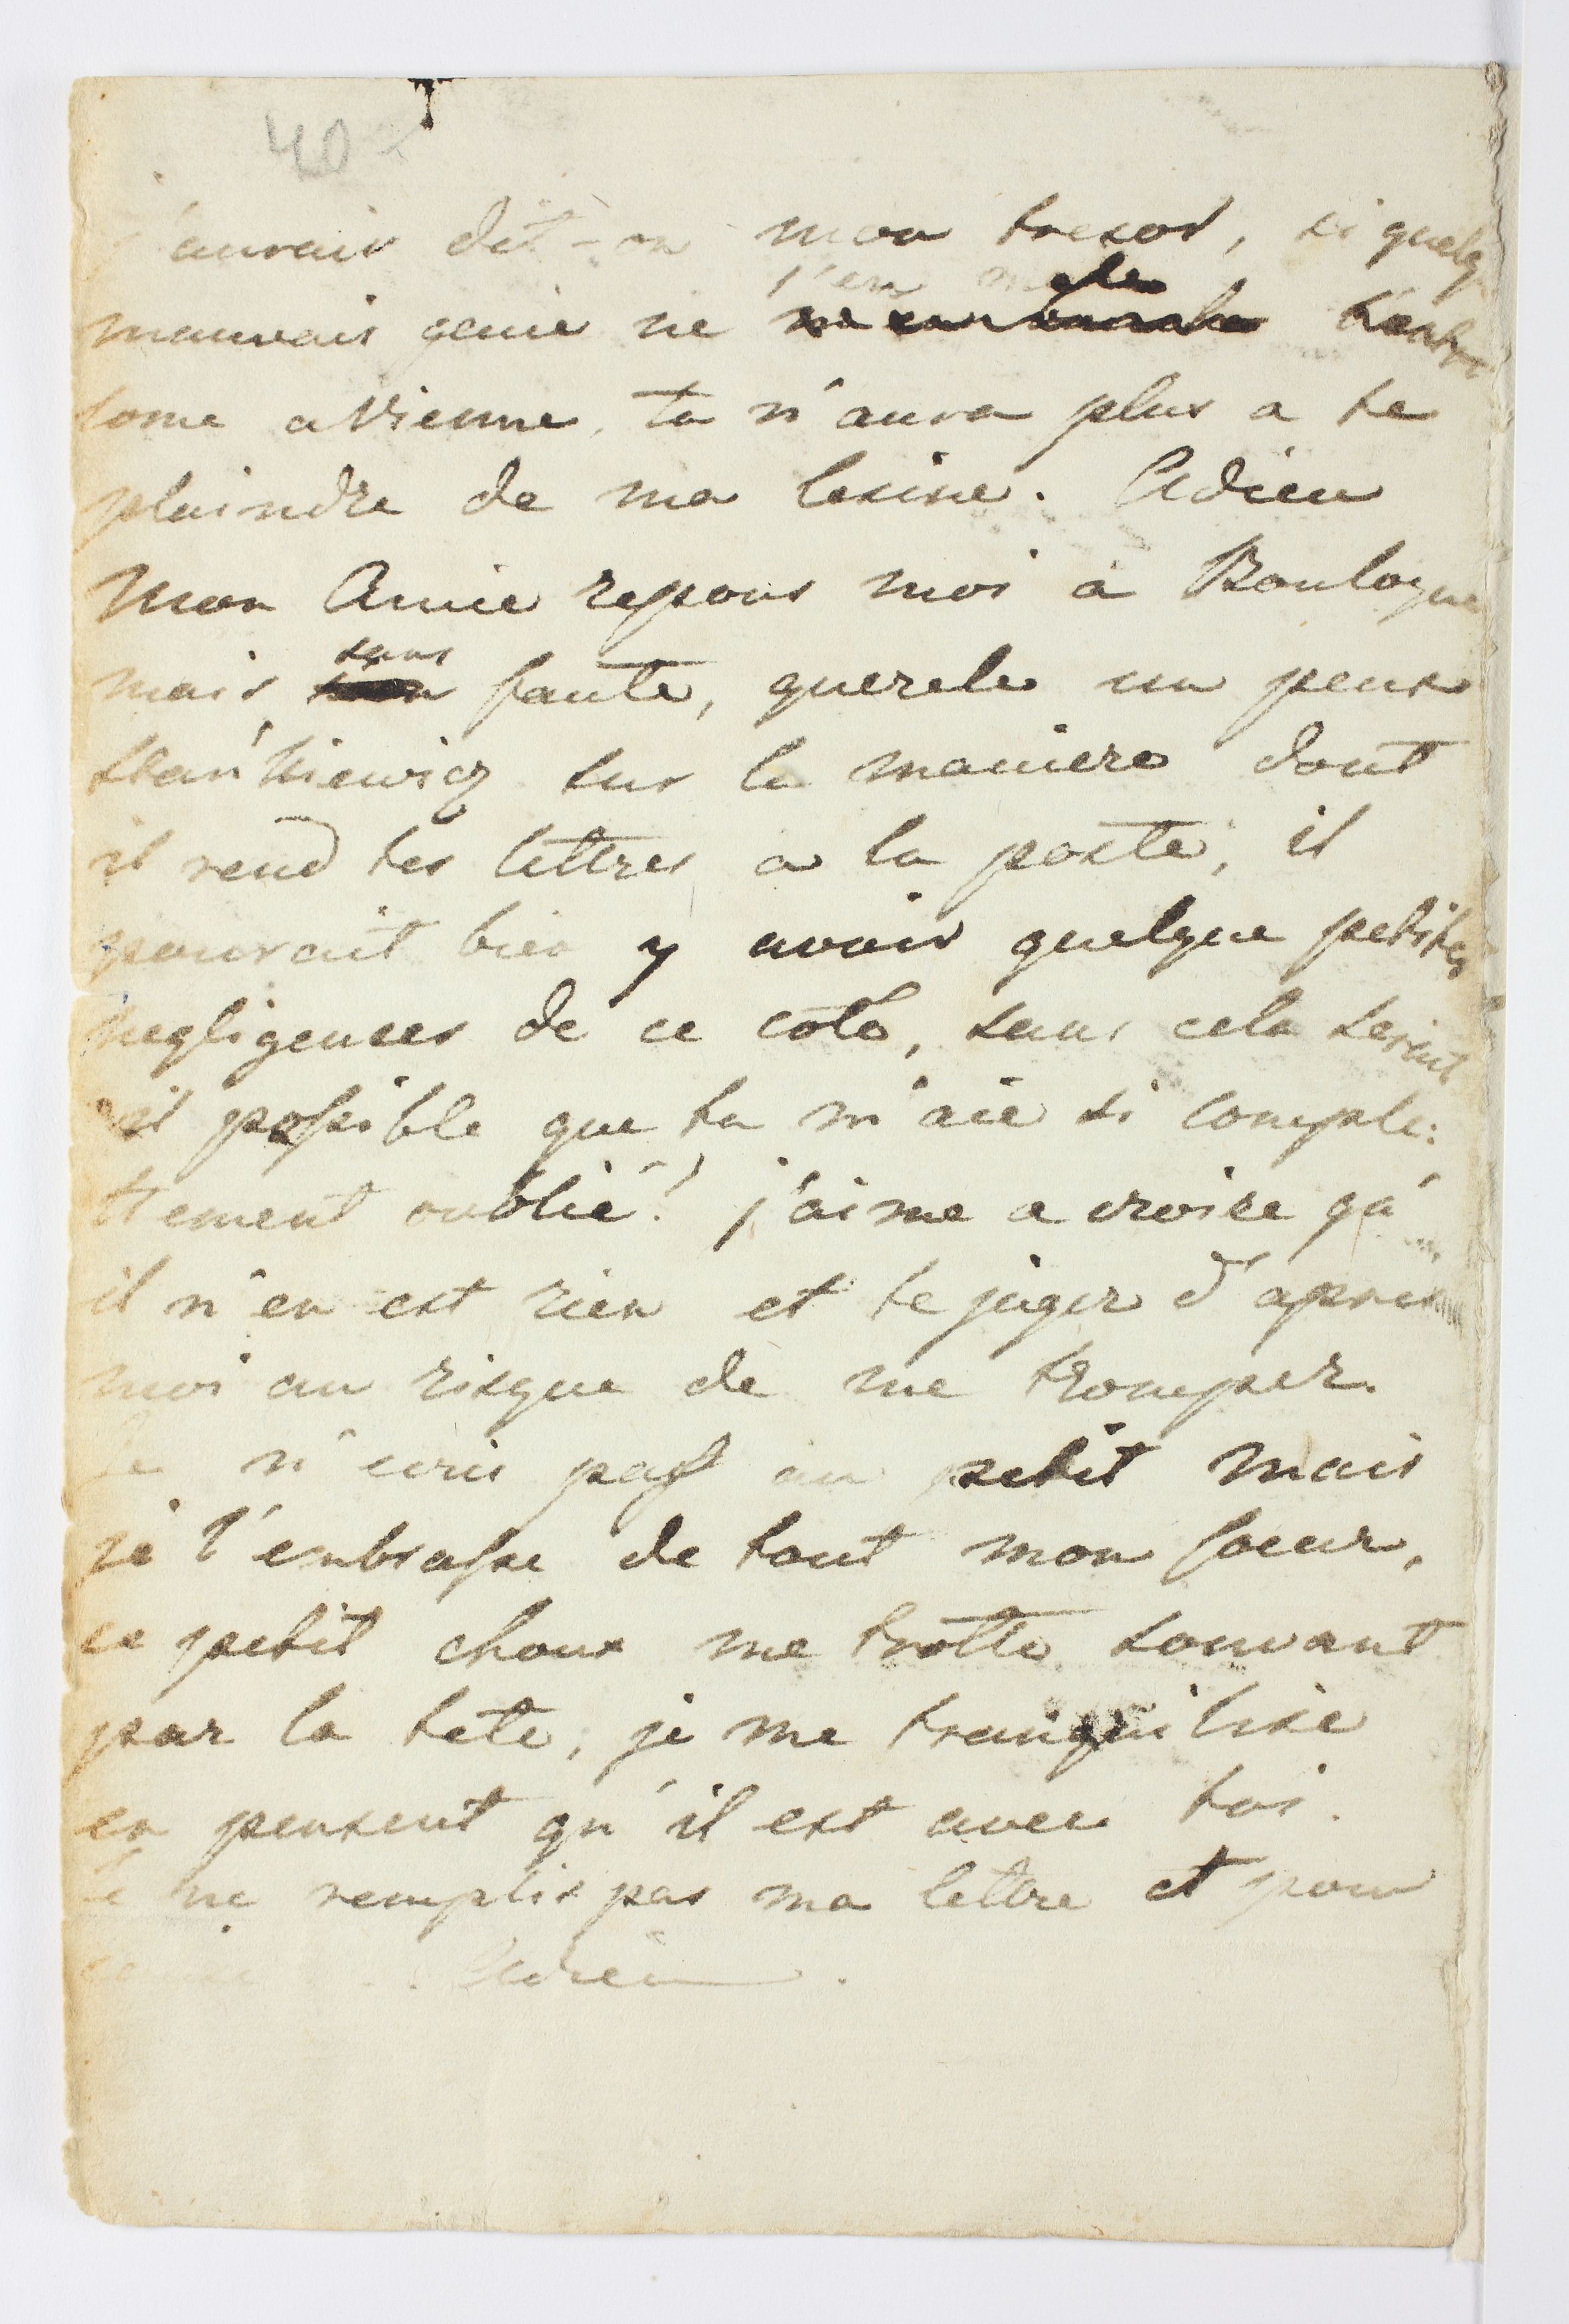 40
j'aurais dit-on mon tresor, si quelq
mauvais genie ne s'en mele
tome a Vienne, tu n'aura plus a te
plaindre de ma lesine. Adieu
Mon Amie repons moi à Boulogne
mais sans faute, querele un peux
Stańkiewicz sur la maniere dont
il rend tes lettres a la poste, il
pourrait bien y avoir quelque petites
negligences de ce coté, sans cela serait
il possible que tu m'aie si comple:
ttement oublié! j'aime a croire qu'
il n'en est rien et te juger d'apres
moi au risque de me tromper.
Je n'ecris pas au petit mais
je l'embrasse de tout mon coeur,
ce petit choux me trotte souvant
par la tete, je me tranquilise
en pensent qu'il est avec toi.
Je ne remplis pas ma lettre et pour
Adieu.